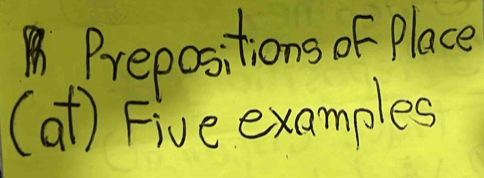 Prepositions of Place
(at) Five examples